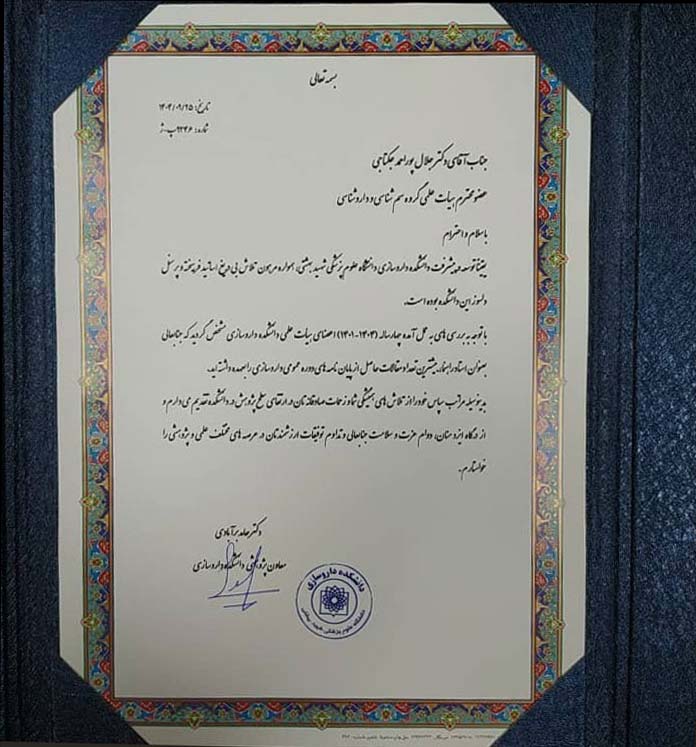 بسمه تعالی
تاریخ: ۱۴۰۴/۰۹/۲۵
شماره: ۹۳۴۶/پ-ژ
جناب آقای دکتر جلال پوراحمد جکتاجی
عضو محترم هیات علمی گروه سم شناسی و داروشناسی
با سلام و احترام
یقینا توسعه و پیشرفت دانشکده داروسازی دانشگاه علوم پزشکی شهید بهشتی، همواره مرهون تلاش بی دریغ اساتید فرهیخته و پرسنل
دلسوز این دانشکده بوده است.
با توجه به بررسی های به عمل آمده چهار ساله (۱۴۰۴-۱۴۰۱) اعضای هیات علمی دانشکده داروسازی مشخص گردید که جنابعالی
بعنوان استاد راهنما، بیشترین تعداد مقالات حاصل از پایان نامه های دوره عمومی داروسازی را بعهده داشته اید.
بدینوسیله مراتب سپاس خود را از تلاش های همیشگی شما و زحمات صادقانه تان در ارتقای سطح پژوهش در دانشکده تقدیم می دارم و
از درگاه ایزد منان، دوام عزت و سلامت جنابعالی و تداوم توفیقات ارزشمندتان در عرصه های مختلف علمی و پژوهشی را
خواستارم.
دکتر حامد برآبادی
معاون پژوهشی دانشکده داروسازی
دانشکده داروسازی
دانشگاه علوم پزشکی شهید بهشتی